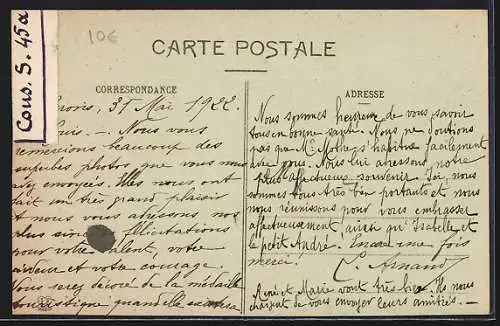 Cons. S. 45a
10€
CARTE POSTALE
CORRESPONDANCE
31 Mai 1922.
Nous vous
remercions beaucoup des
superbes photos que vous nous
avez envoyées. Elles nous ont
fait un très grand plaisir
et nous vous adressons nos
plus sincères félicitations
pour votre talent, votre
et votre courage.
Vous serez décoré de la médaille
quand elle
ADRESSE
Nous sommes heureux de vous savoir
tous en bonne santé. Nous ne doutions
pas que Mr habitue facilement
avec vous. Nous lui adressons notre
plus affectueux souvenir. Ici, nous
sommes tous très bien portants et nous
nous réunissons pour vous embrasser
affectueusement ainsi qu'Isabelle et
le petit André. Encore une fois
merci!
C. Arnaud
René et Marie vont très bien. Ils nous
chargent de vous envoyer leurs amitiés. —